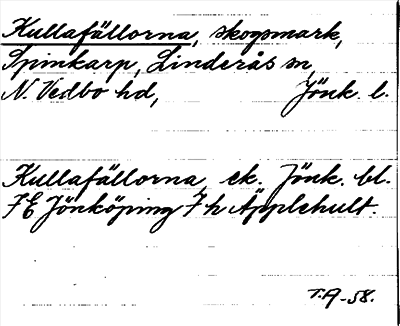 Kullafällorna, skogsmark,
Spinkarp, Linderås sn,
N. Vedbo hd, Jönk. l.
Kullafällorna, ek. Jönk. bl.
7E Jönköping 7h Äpplehult.
T.A-58.